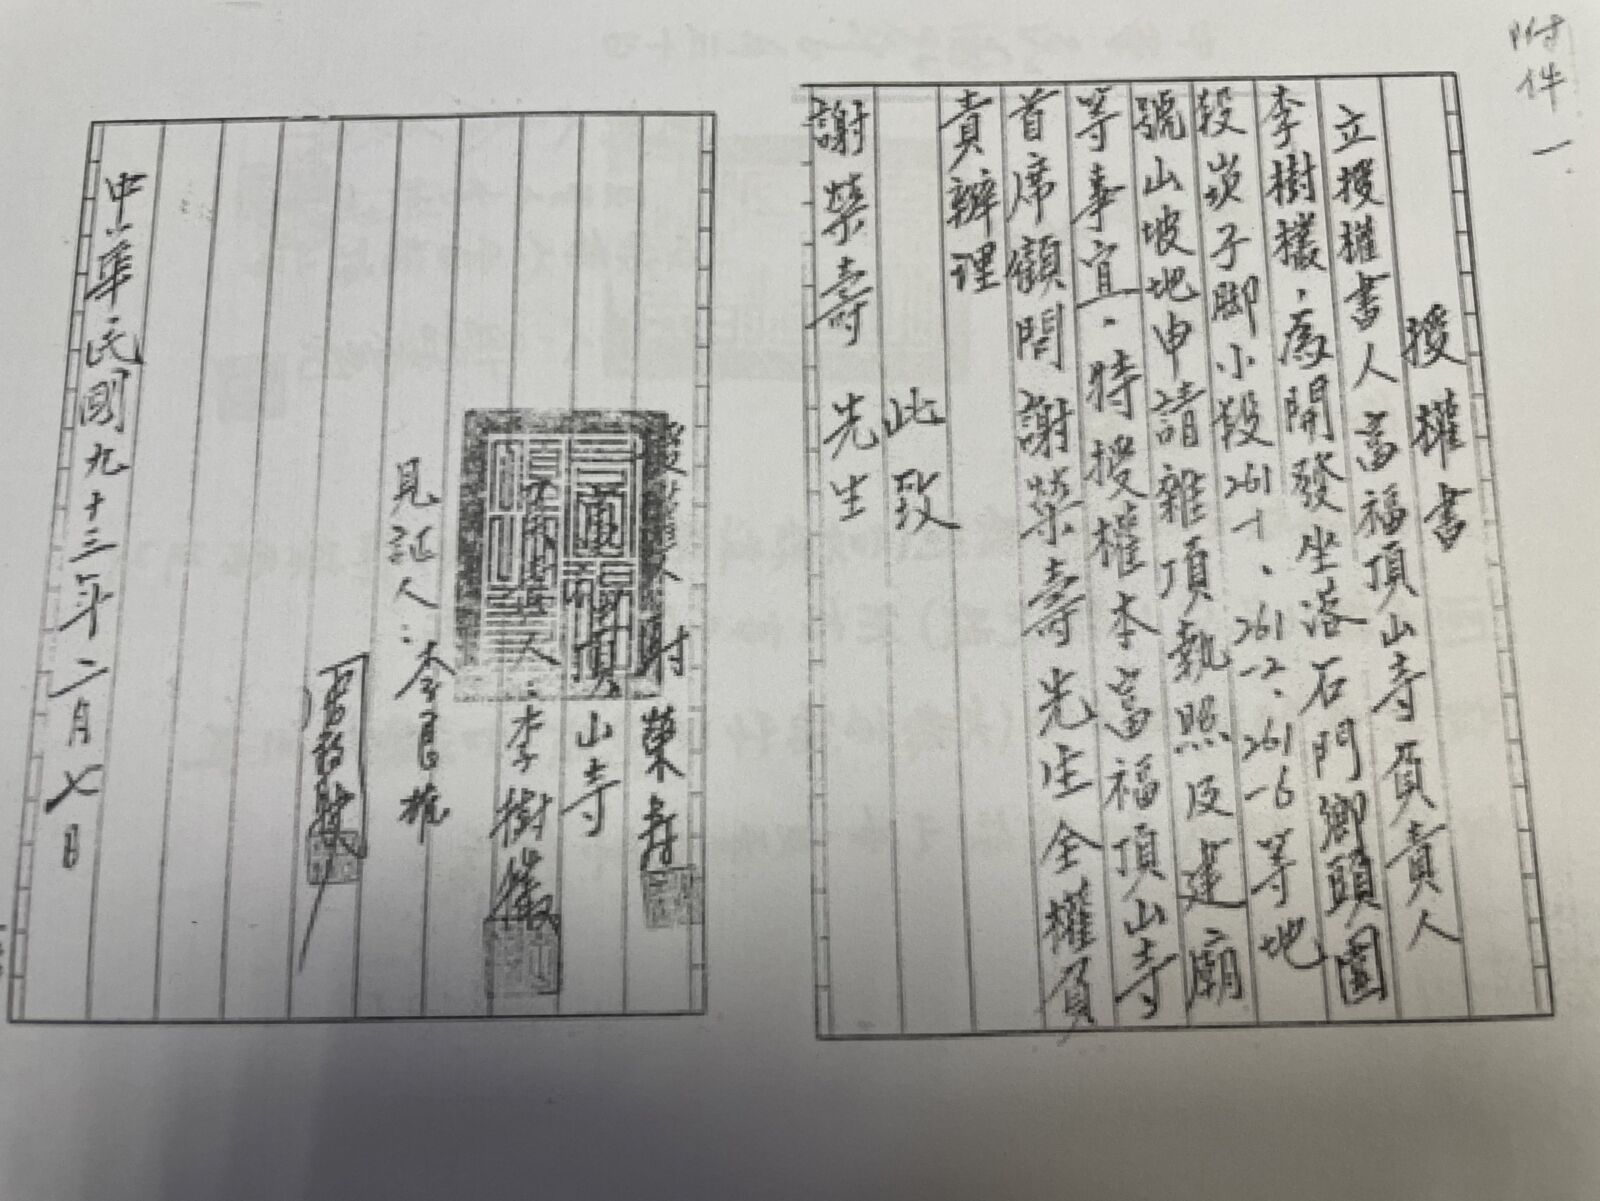 附件一
授權書
立授權書人富福頂山寺負責人
李樹㰖、為開發坐落石門鄉頭圍
段崁子脚小段261-1、261-2、261-6等地
號山坡地申請雜項執照及建廟
等事宜、特授權本富福頂山寺
首席顧問謝榮壽先生全權負
責辦理
此致
謝榮壽 先生
人 謝榮壽
富福頂山寺
人：李樹
見証人：李
中華民國九十三年二月七日